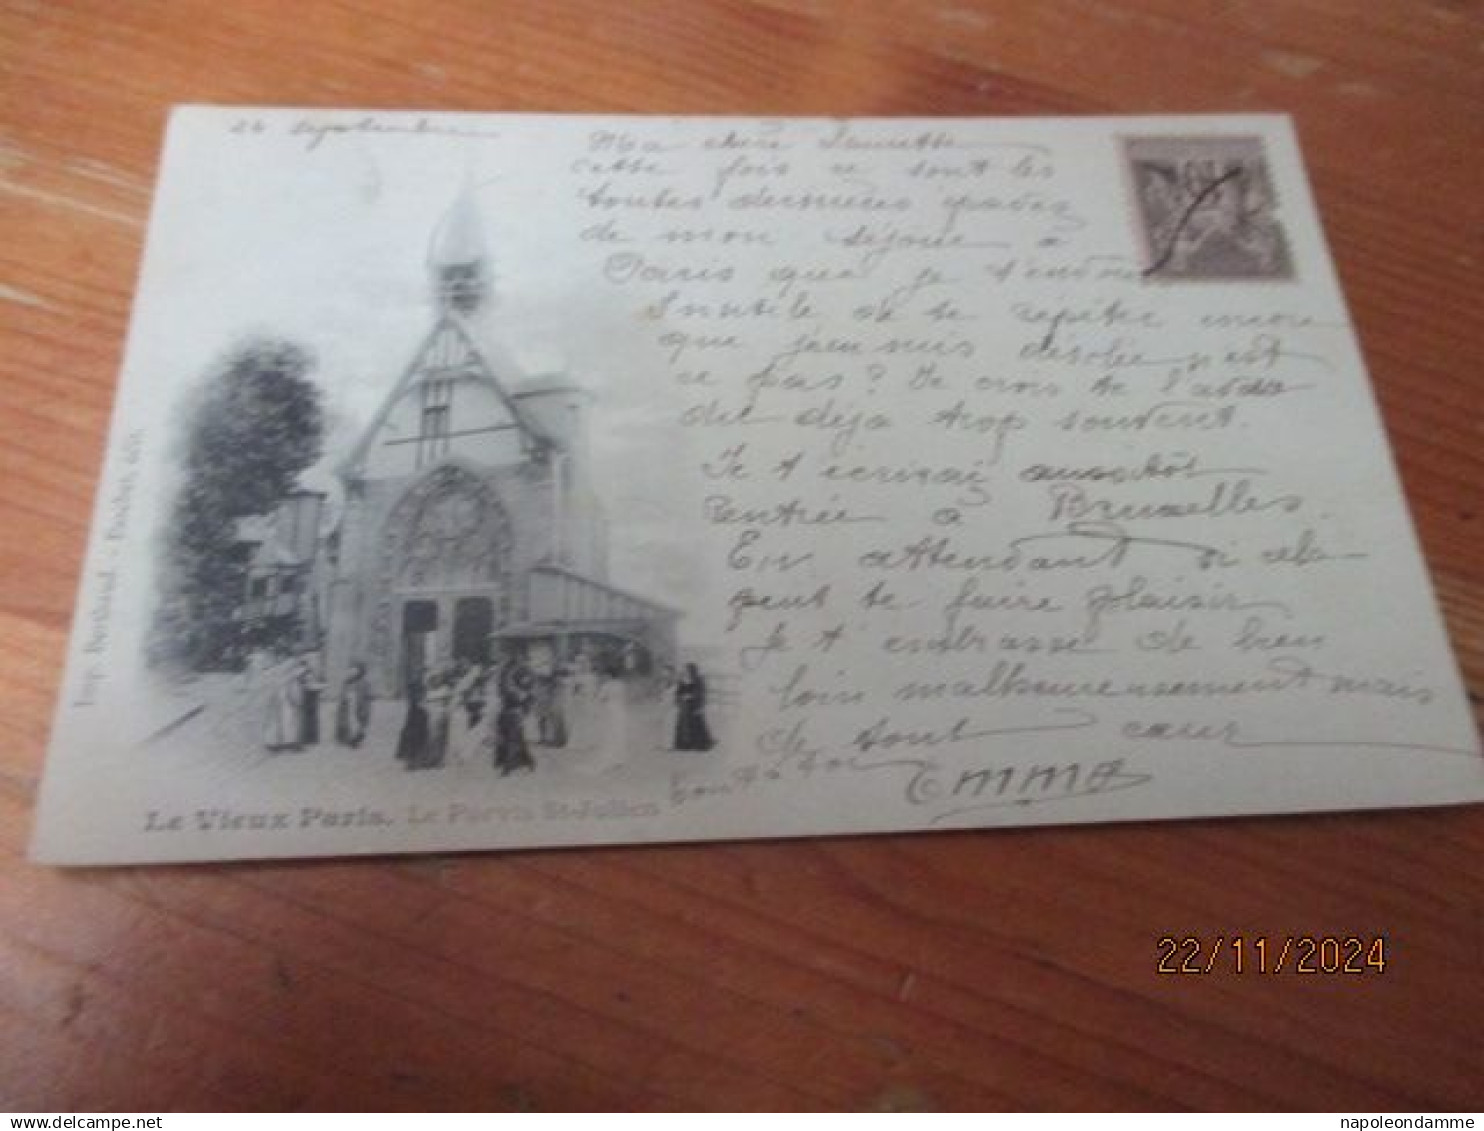 26 septembre
Ma chère
cette fois ce sont les
toutes dernières
de mon séjour à
Paris que je t'envoie
Inutile de te répéter encore
que j'en suis désolée n'est
ce pas? Je crois te l'avoir
dit déjà trop souvent.
Je t'écrirai aussitôt
rentrée à Bruxelles.
En attendant si cela
peut te faire plaisir
Je t'embrasse de bien
loin malheureusement mais
de tout cœur
tout à toi Emma
Imp. Berthaud.
Le Vieux Paris. Le Parvis St-Julien
22/11/2024
napoleondamme